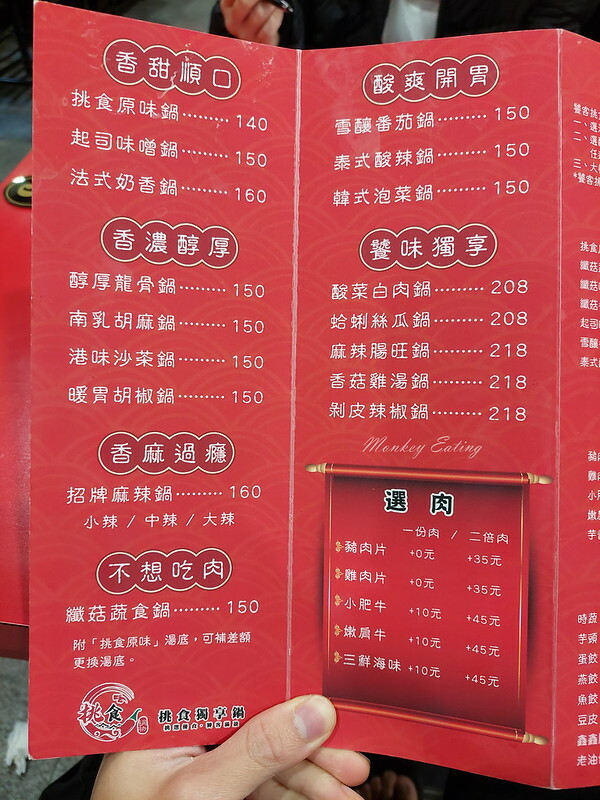 香甜順口
挑食原味鍋⋯⋯⋯ 140
起司味噌鍋⋯⋯⋯ 150
法式奶香鍋⋯⋯⋯ 160
香濃醇厚
醇厚龍骨鍋⋯⋯⋯ 150
南乳胡麻鍋⋯⋯⋯ 150
港味沙茶鍋⋯⋯⋯ 150
暖胃胡椒鍋⋯⋯⋯ 150
香麻過癮
招牌麻辣鍋⋯⋯⋯ 160
小辣 / 中辣 / 大辣
不想吃肉
纖菇蔬食鍋⋯⋯⋯ 150
附「挑食原味」湯底，可補差額
更換湯底。
挑食
挑食獨享鍋
酸爽開胃
雪釀番茄鍋⋯⋯⋯ 150
泰式酸辣鍋⋯⋯⋯ 150
韓式泡菜鍋⋯⋯⋯ 150
饕味獨享
酸菜白肉鍋⋯⋯⋯ 208
蛤蜊絲瓜鍋⋯⋯⋯ 208
麻辣腸旺鍋⋯⋯⋯ 218
香菇雞湯鍋⋯⋯⋯ 218
剝皮辣椒鍋⋯⋯⋯ 218
Monkey Eating
選肉
一份肉 / 二倍肉
豬肉片 +0元 +35元
雞肉片 +0元 +35元
小肥牛 +10元 +45元
嫩肩牛 +10元 +45元
三鮮海味 +10元 +45元
饕客挑
一、選
二、選
任
三、大
*饕客
挑食
纖菇
纖菇
纖菇
起司
雪釀
泰式
豬肉
雞肉
小肥
嫩肩
芋
時蔬
芋頭
蛋餃
燕餃
魚餃
豆皮
鑫鑫
老油